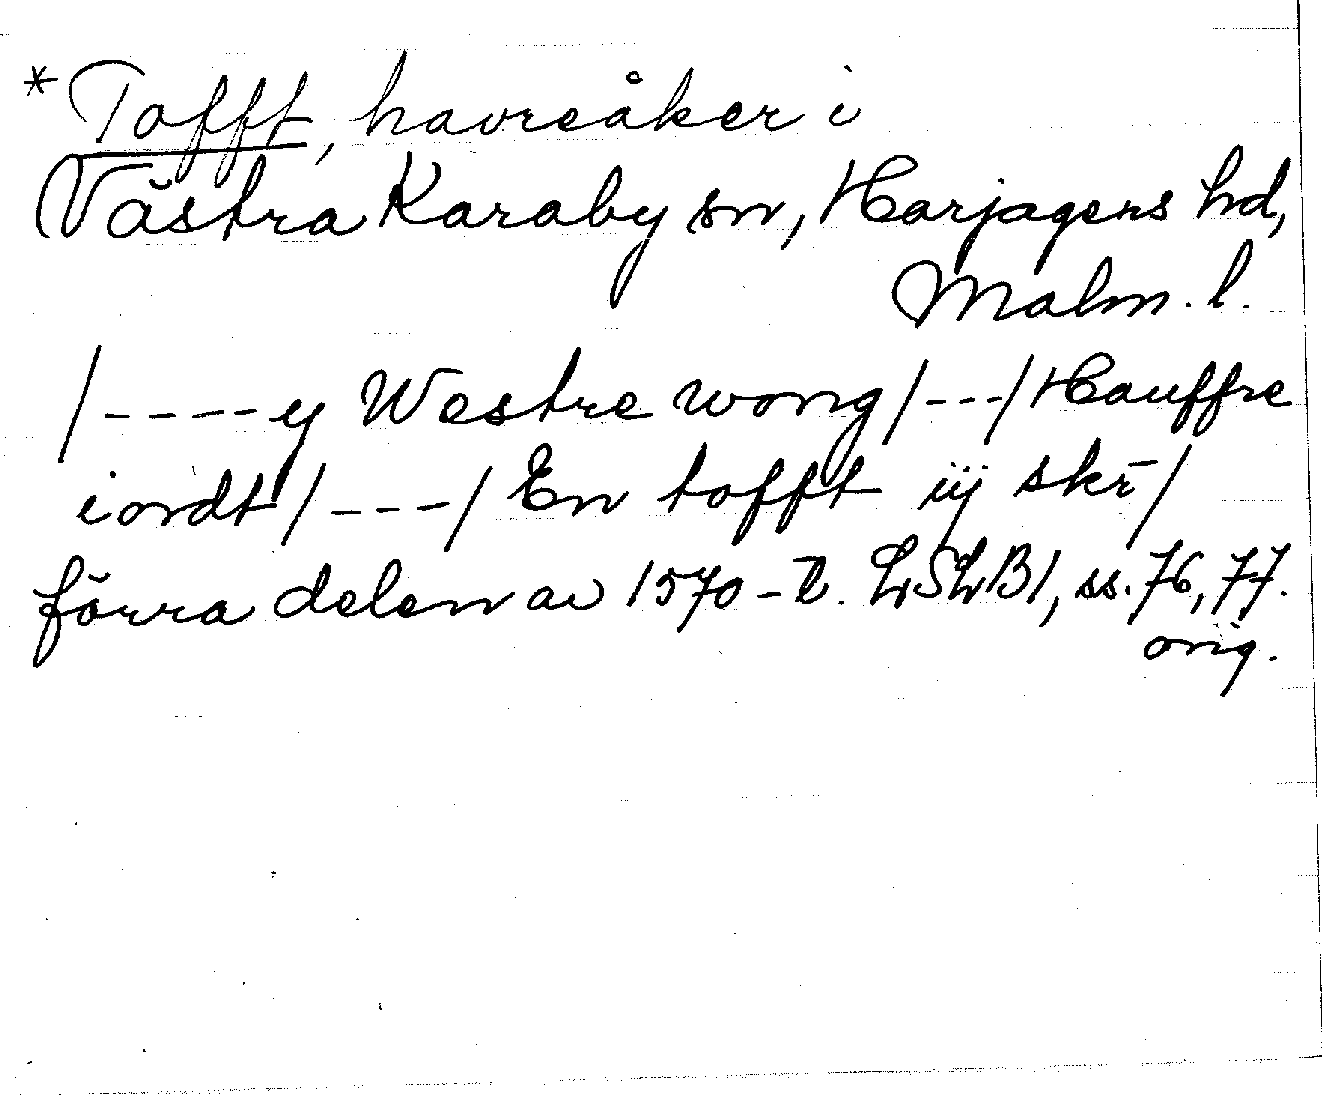 *Tofft, havreåker i
Västra Karaby sn, Harjagers hd,
Malm. l.
/----y Westre wong/---/Hauffre
iordt/---/En tofft iij skr̄/
förra delen av 1570-t. LSLB1, ss. 76, 77.
orig.